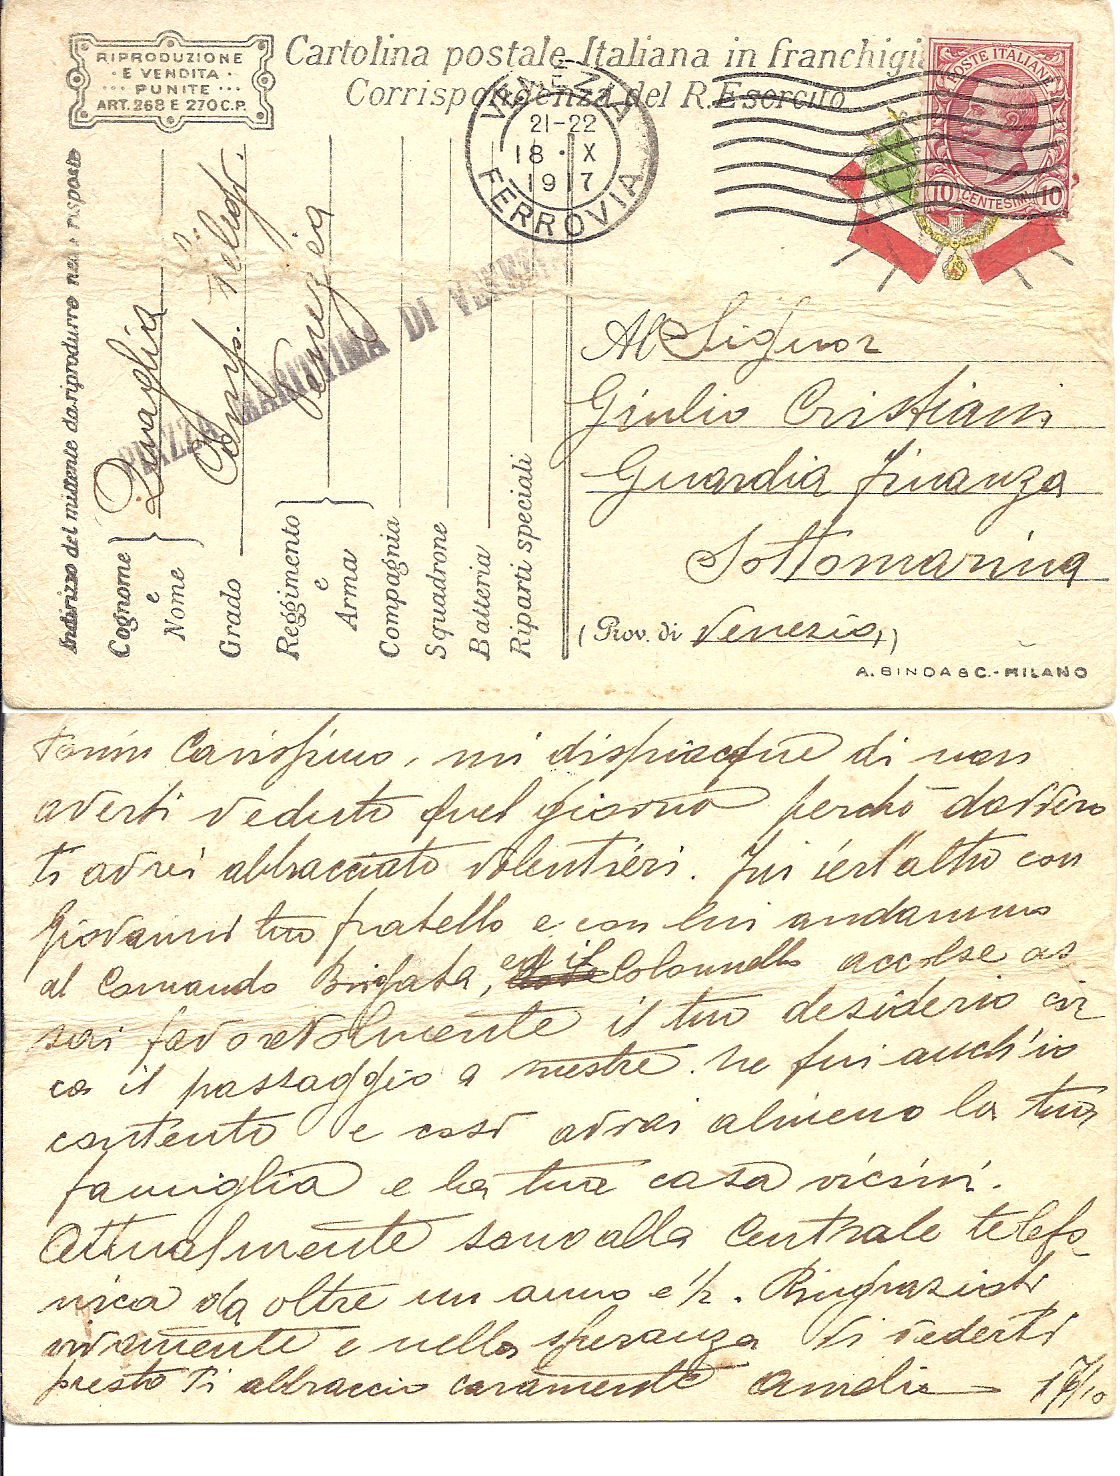 RIPRODUZIONE
· E VENDITA ·
··· PUNITE ···
ART. 268 E 270 C.P.
Cartolina postale Italiana in franchigi
Corrispondenza del R. Esercito
VENEZIA
21-22
18 · X
1917
FERROVIA
POSTE ITALIANE
10 CENTESIMI 10
Indirizzo del mittente da riprodurre nella risposta
Cognome
e
Nome
Quaglia
Grado
Reggimento
e
Arma
Venezia
Compagnia
Squadrone
Batteria
Riparti speciali
PIAZZA MARITTIMA DI VENEZIA
Al Signor
Giulio Cristiani
Guardia Finanza
Sottomarina
(Prov. di Venezia)
A. BINDA & C. - MILANO
mi dispiacque di non
averti veduto quel giorno perchè davvero
ti avrei abbracciato volentieri. Fui ierl'altro con
Giovanni tuo fratello e con lui andammo
al Comando Brigata, ed il Colonnello accolse as
sai favorevolmente il tuo desiderio cir
ca il passaggio a mestre. ne fui anch'io
contento e così avrai almeno la tua
famiglia e la tua casa vicini.
Attualmente sono alla Centrale telefo-
nica da oltre un anno e ½. Ringrazioti
vivamente e nella speranza di vederti
presto Ti abbraccio caramente 17/10